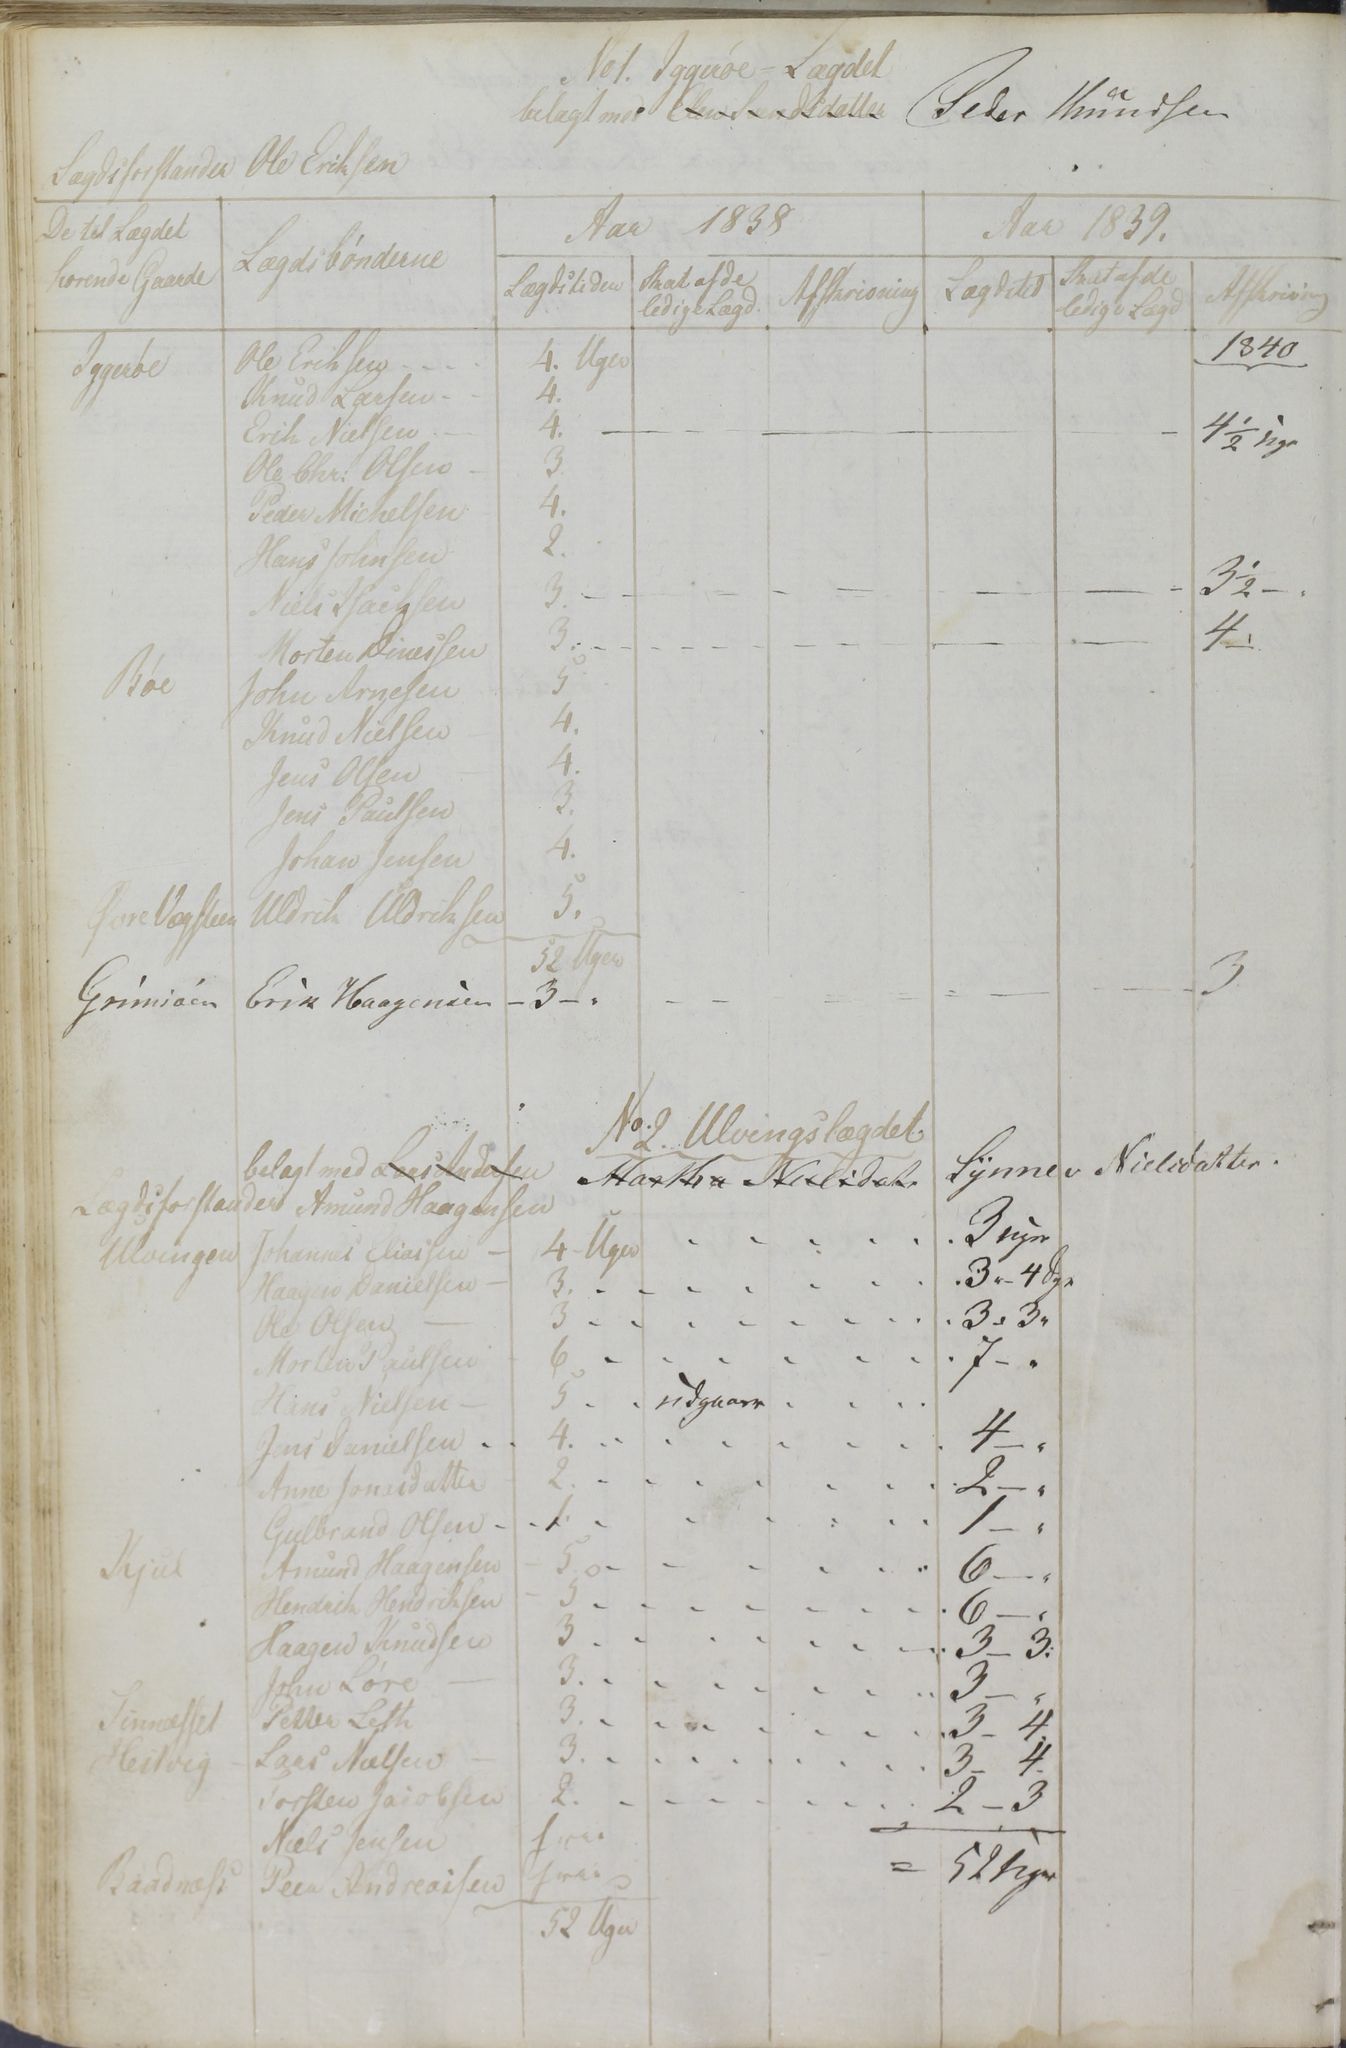 No 1. Iggerøe-Lægdet
belagt med Peder Knudsen
Lægdsforstander Ole Eriksen
De til Lægdet hørende Gaarde Lægdsbønderne Aar 1838 Aar 1839.
Lægdstiden Skat af de ledige Lægd. Afskrivning Lægdstid Skat af de ledige Lægd Afskrivning
Iggerøe Ole Eriksen 4. Uger 1840
Knud Larsen 4.
Erik Nielsen 4. 4 1/2 Ugr
Ole Chr: Olsen 3.
Peder Michelsen 4.
Hans Johnsen 2.
Niels Isachsen 3. 3 1/2 -
Morten Dinessen 3. 4 -
Bøe John Arnesen 5
Knud Nielsen 4.
Jens Olsen 4.
Jens Paulsen 3.
Johan Jensen 4.
Uldrik Uldriksen 5.
52 Uger
Grimsøen Erik Haagensen - 3 - 3
No. 2. Ulvingslægdet
belagt med Martha Nielsdatr Synnev Nielsdatter.
Lægdsforstander Amund Haagensen
Ulvingen Johannes Eliassen - 4 - Uger 3 Ugr
Haagen Danielsen - 3. 3 " 4 Dgr
Ole Olsen - 3 3 " 3 "
Morten Paulsen 6 7 - "
Hans Nielsen - 5 udgaaer
Jens Danielsen 4. 4 - "
Anne Jonasdatter 2. 2 - "
Gulbrand Olsen - 1. 1 - "
Kjul Amund Haagensen - 5 6 - "
Hendrik Hendriksen - 5 6 - "
Haagen Knudsen 3 3 - 3.
John Løre - 3. 3 - "
Petter Leth 3. 3 - 4.
Lars Nielsen - 3. 3 - 4.
Torsten Jacobsen 2. 2 - 3
Niels Jensen frie
Baadnæss Peer Andreassen frie = 52 Ugr
52 Uger